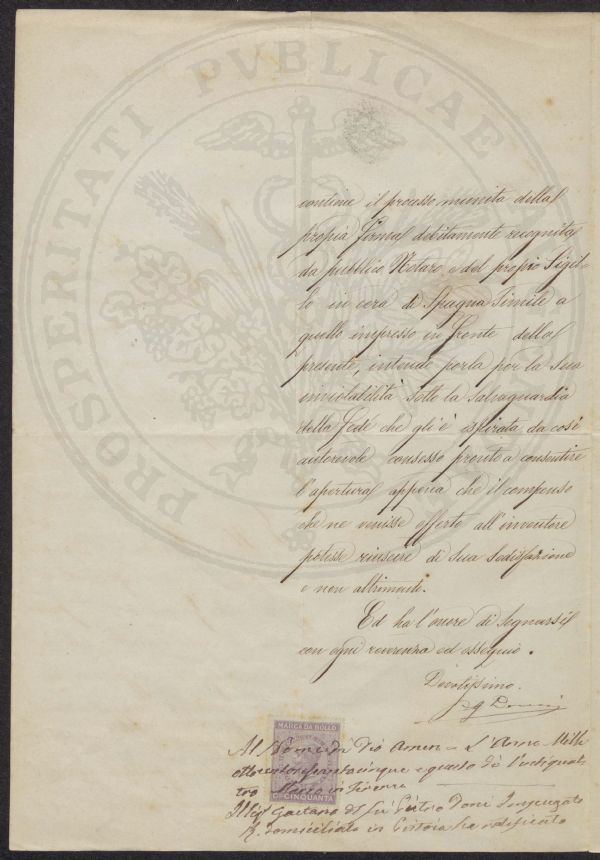 PROSPERITATI PVBLICAE
contiene il processo munita della
propria firma debitamente recognita
da pubblico Notaro, e del proprio Sigil-
lo in cera di Spagna simile a
quello impresso in fronte della
presente, intende porla per la sua
inviolabilità sotto la salvaguardia
della fede che gli è ispirata da così
autorevole consesso pronto a consentire
l'apertura appena che il compenso
che ne venisse offerto all'inventore
potesse riescire di sua sodisfazione
e non altrimenti.
Ed ha l'onore di segnarsi
con ogni reverenza ed ossequio.
Devotissimo.
MARCA DA BOLLO
Ci CINQUANTA
Al Nome di Dio Amen - L'Anno Mille
ottocentosessantacinque e questo dì
Marzo in Firenze
Il Sig. Gaetano del fu Pietro Doni Impiegato
R. domiciliato in Pistoia ha ratificato